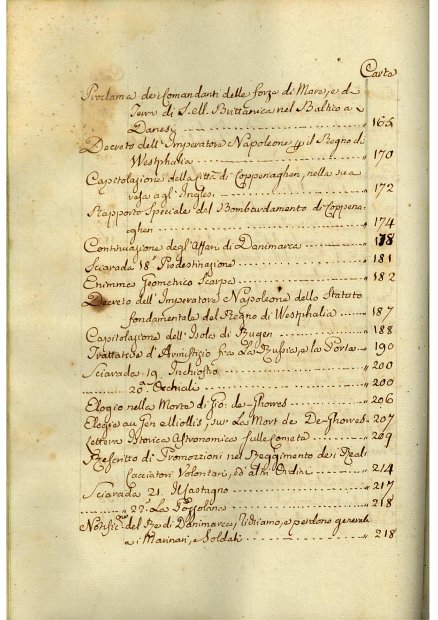 Carta
Proclama de i Comandanti delle forza di Mare, e di
Terra di S. M. Brittanica nel Baltio a
Danesi " 165
Decreto dell' Imperatore Napoleone p il Regno di
Westphalia " 170
Capitolazione della Città di Coppenaghen, nella sua
resa agl' Inglesi " 172
Rapporto Speciale del Bombardamento di Coppena
ghen " 174
Continuazione degl' Affari di Danimarca " 178
Sciarada 18. Predestinazione " 181
Enimma Geometrico Scarpa " 182
Decreto dell' Imperatore Napoleone dello Statuto
fondamentale del Regno di Westphalia " 187
Capitolazione dell' Isola di Rugen " 188
Trattato d' Armistizio fra La Russia, e la Porta " 190
Sciarada 19. Inchiostro " 200
20. Occhiali " 200
Elogio nella Morte di " 206
Elegie au Gen sur La Mort de De- " 207
Lettera Istorica Astronomica sulle Comete " 209
Rescritto di Promozzioni nel Reggimento de i Real
Cacciatori Volontari, ed' altri Ordini " 214
Sciarada 21. Il Castagno " 217
" 22. La Pozzolana " 218
del Re di Danimarca, e perdono generali
a i Marinari, e Soldati " 218